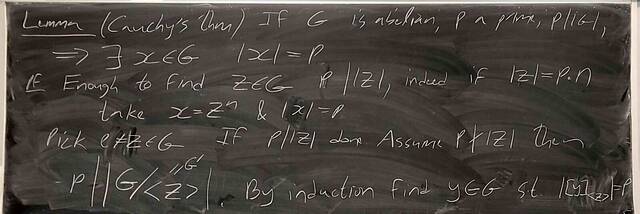 Lemma (Cauchy's Thm) If G is abelian, P a prime, p||G|,
⟹ ∃ x∈G |x|=P.
PF Enough to find Z∈G P||Z|, indeed if |z|=P·n
take x=Zⁿ & |x|=p
Pick e≠Z∈G If p||z| done. Assume p∤|z| Then
P | |G/<z>| "G' By induction find y∈G st. |[y]<z>|=P